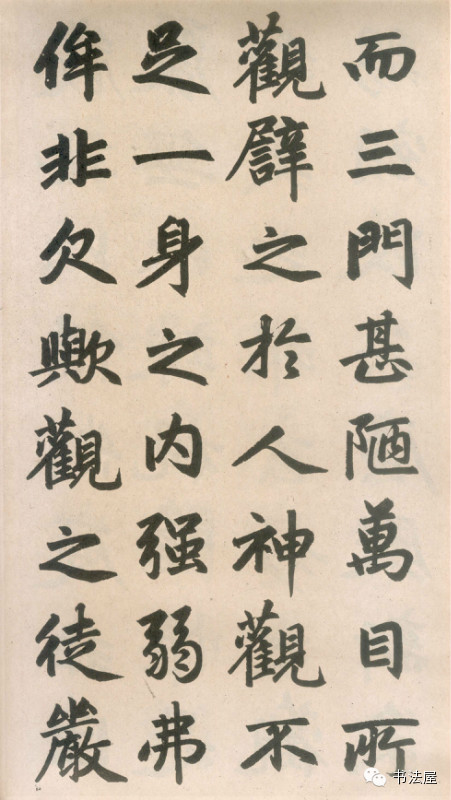 而三門甚陋萬目所
觀譬之於人神觀不
足一身之内强弱弗
侔非欠歟觀之徒嚴
书法屋